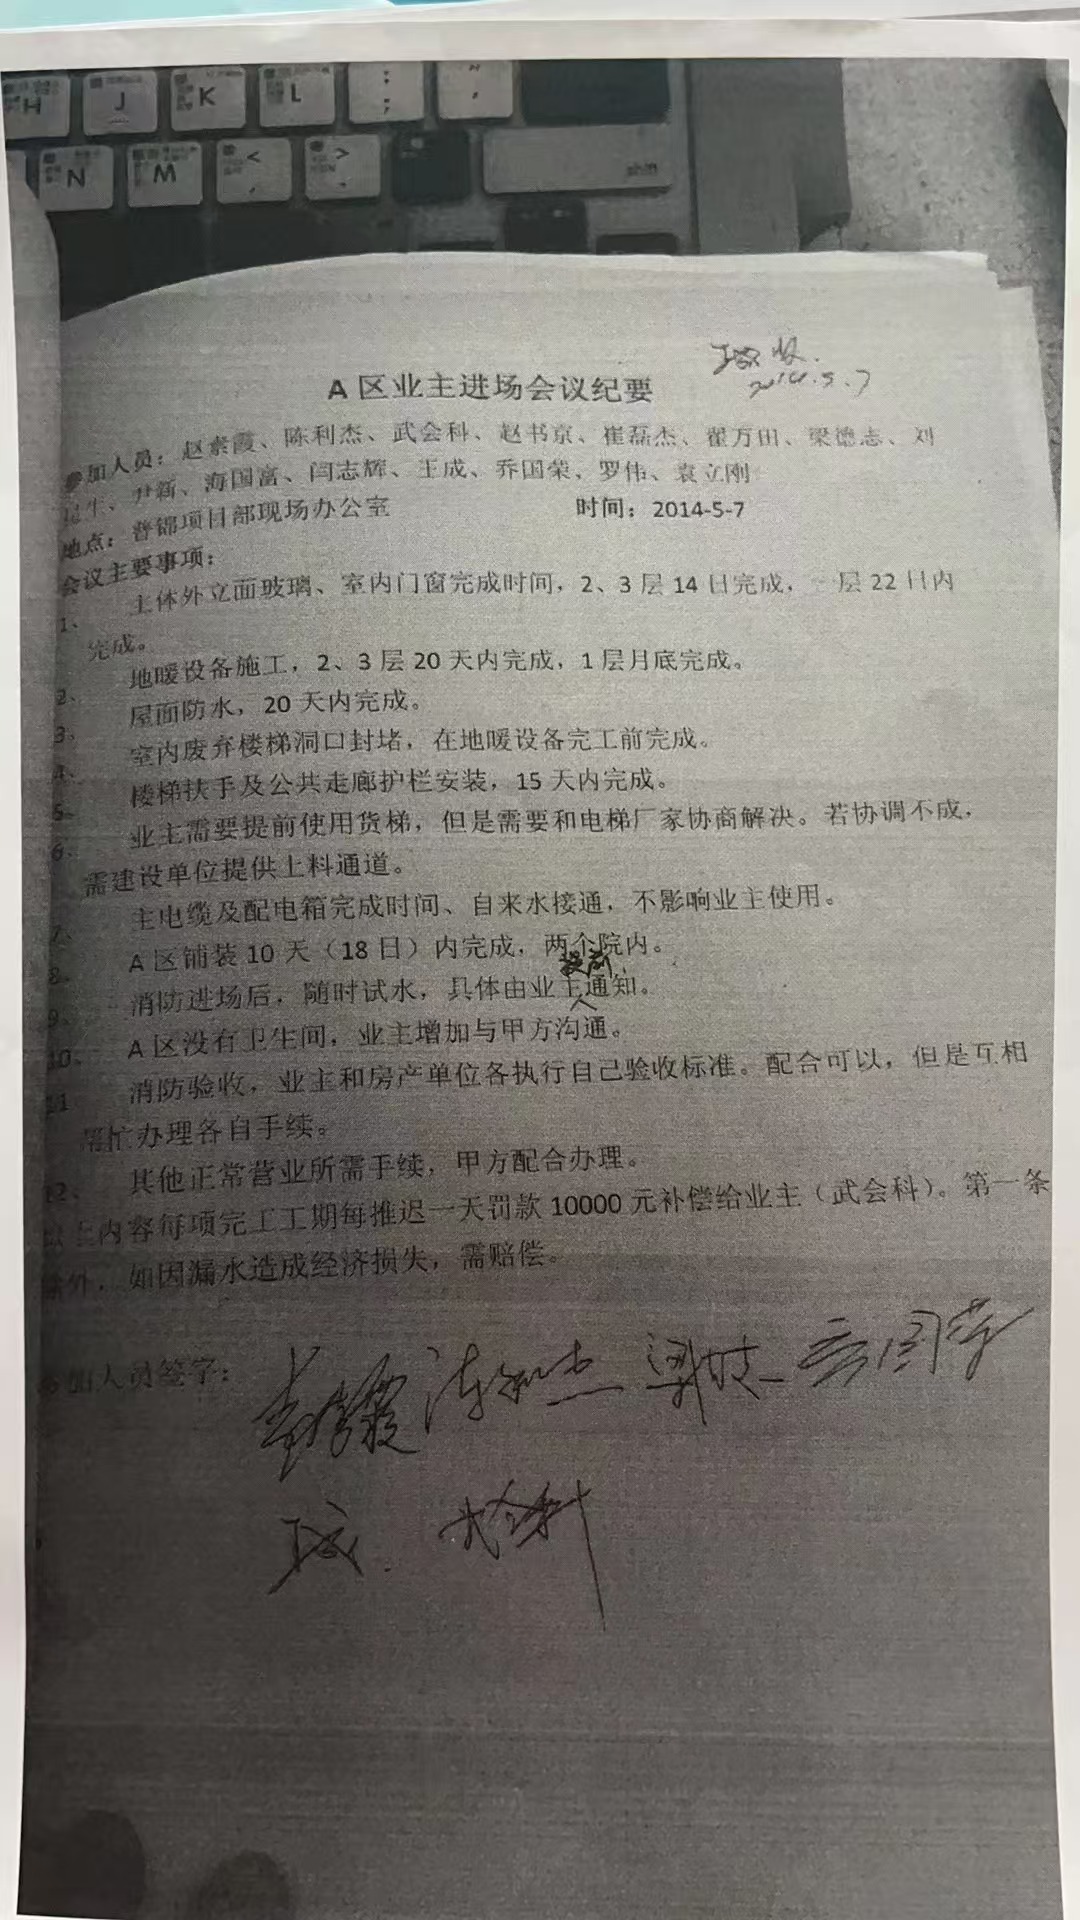 H J K L : ; " ,
N M < , > . shift
收.
2014.5.7
A区业主进场会议纪要
参加人员：赵素霞、陈利杰、武会科、赵书京、崔磊杰、翟万田、梁德志、刘
生、尹新、海国富、闫志辉、王成、乔国荣、罗伟、袁立刚
地点：普锦项目部现场办公室 时间：2014-5-7
会议主要事项：
1、 主体外立面玻璃、室内门窗完成时间，2、3层14日完成，一层22日内
完成。
2、 地暖设备施工，2、3层20天内完成，1层月底完成。
3、 屋面防水，20天内完成。
4、 室内废弃楼梯洞口封堵，在地暖设备完工前完成。
5、 楼梯扶手及公共走廊护栏安装，15天内完成。
6、 业主需要提前使用货梯，但是需要和电梯厂家协商解决。若协调不成，
需建设单位提供上料通道。
7、 主电缆及配电箱完成时间、自来水接通，不影响业主使用。
8、 A区铺装10天（18日）内完成，两个院内。
提前
9、 消防进场后，随时试水，具体由业主通知。
10、 A区没有卫生间，业主增加与甲方沟通。
11、 消防验收，业主和房产单位各执行自己验收标准。配合可以，但是互相
帮忙办理各自手续。
12、 其他正常营业所需手续，甲方配合办理。
以上内容每项完工工期每推迟一天罚款10000元补偿给业主（武会科）。第一条
除外，如因漏水造成经济损失，需赔偿。
参加人员签字：
赵素霞 陈利杰 梁德志 乔国荣
王成 武会科